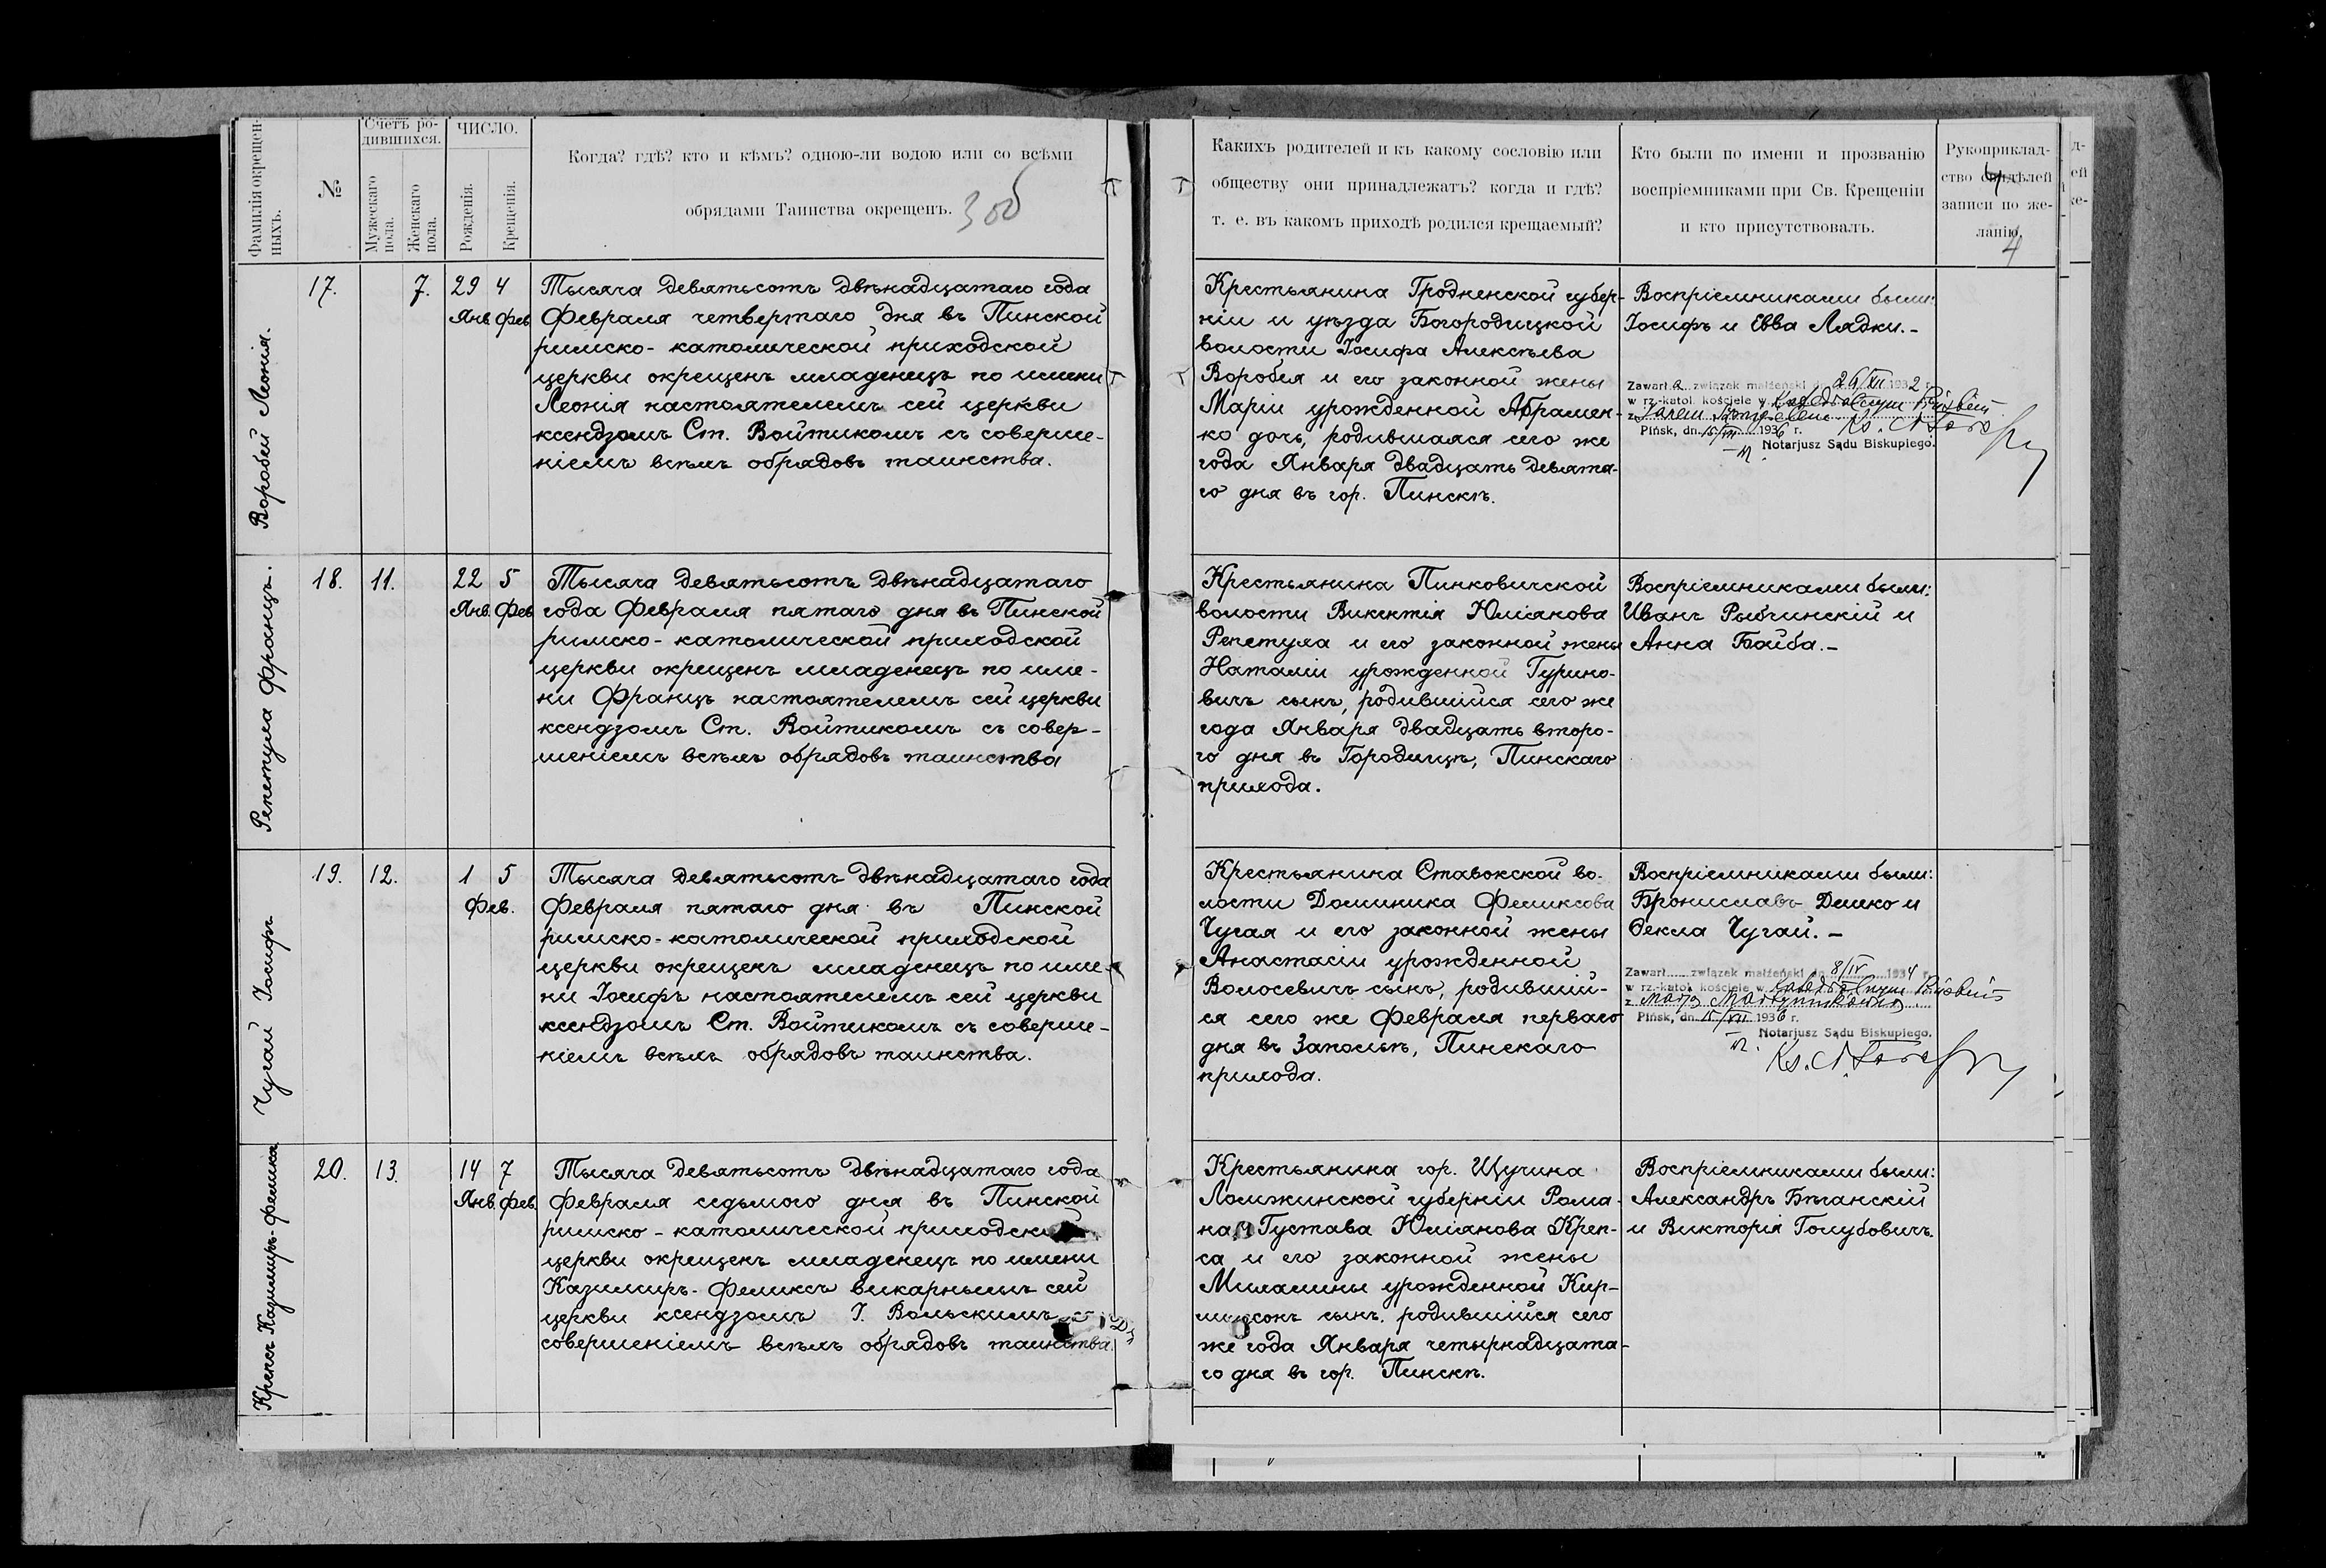 Фамилія окрещен-
ныхъ.
№
Счетъ ро-
дившихся.
Мужескаго
пола.
Женскаго
пола.
ЧИСЛО.
Рожденія.
Крещенія.
Когда? гдѣ? кто и кѣмъ? одною-ли водою или со всѣми
обрядами Таинства окрещенъ.
Какихъ родителей и къ какому сословію или
обществу они принадлежатъ? когда и гдѣ?
т. е. въ какомъ приходѣ родился крещаемый?
Кто были по имени и прозванію
воспріемниками при Св. Крещеніи
и кто присутствовалъ.
Рукоприклад-
ство свидѣлей
записи по же-
ланію.
4
Воробей Леонія.
17.
7.
29 4
Янв Фев
Тысяча девятьсотъ двѣнадцатаго года
Февраля четвертаго дня въ Пинской
римско-католической приходской
церкви окрещенъ младенецъ по имени
Леонія настоятелемъ сей церкви
ксендзомъ Ст. Войтикомъ съ соверше-
ніемъ всѣхъ обрядовъ таинства.
Крестьянина Гродненской губер-
ніи и уѣзда Богородицкой
волости Іосифа Алексѣева
Воробея и его законной жены
Маріи урожденной Абрамен-
ко дочь, родившаяся сего же
года Января двадцать девята-
го дня въ гор. Пинскѣ.
Воспріемниками были:
Іосифъ и Евва Лядки.-
Zawarł a związek małżeński dn. 26/XII 1932 r.
w rz.-katol. kościele w Katedralnym Pińskim
z
Pińsk, dn. 15/VII 1936 r.
Notarjusz Sądu Biskupiego.
Репетула Францъ.
18.
11.
22 5
Янв. Фев
Тысяча девятьсотъ двѣнадцатаго
года Февраля пятаго дня въ Пинской
римско-католической приходской
церкви окрещенъ младенецъ по име-
ни Францъ настоятелемъ сей церкви
ксендзомъ Ст. Войтикомъ съ совер-
шеніемъ всѣхъ обрядовъ таинства
Крестьянина Пинковичской
волости Викентія Юліанова
Репетула и его законной жены
Наталіи урожденной Турино-
вичъ сынъ, родившійся сего же
года Января двадцать второ-
го дня въ Городищѣ, Пинскаго
прихода.
Воспріемниками были:
Иванъ Рыбчинскій и
Анна Байба.-
Чугай Іосифъ
19.
12.
1 5
Фев.
Тысяча девятьсотъ двѣнадцатаго года
Февраля пятаго дня въ Пинской
римско-католической приходской
церкви окрещенъ младенецъ по име-
ни Іосифъ настоятелемъ сей церкви
ксендзомъ Ст. Войтикомъ съ соверше-
ніемъ всѣхъ обрядовъ таинства.
Крестьянина Ставокской во-
лости Доминика Феликсова
Чугая и его законной жены
Анастасіи урожденной
Волосевичъ сынъ, родившій-
ся сего же Февраля перваго
дня въ Запольѣ, Пинскаго
прихода.
Воспріемниками были:
Брониславъ Демко и
Фекла Чугай.-
Zawarł związek małżeński dn. 8/IV 1934 r.
w rz.-katol. kościele w Katedralnym Pińskim
z
Pińsk, dn. 15/VII 1936 r.
Notarjusz Sądu Biskupiego.
Крепсъ Казимиръ-Феликсъ
20.
13.
14 7
Янв. Фев.
Тысяча девятьсотъ двѣнадцатаго года
Февраля седьмого дня въ Пинской
римско-католической приходской
церкви окрещенъ младенецъ по имени
Казимиръ-Феликсъ викарнымъ сей
церкви ксендзомъ І. Вольскимъ съ
совершеніемъ всѣхъ обрядовъ таинства.
Крестьянина гор. Щучина
Ломжинской губерніи Рома-
на Густава Юліанова Креп-
са и его законной жены
Миламины урожденной Кир-
сонъ сынъ, родившійся сего
же года Января четырнадцата-
го дня въ гор. Пинскѣ.
Воспріемниками были:
Александръ Бѣганскій
и Викторія Голубовичъ.